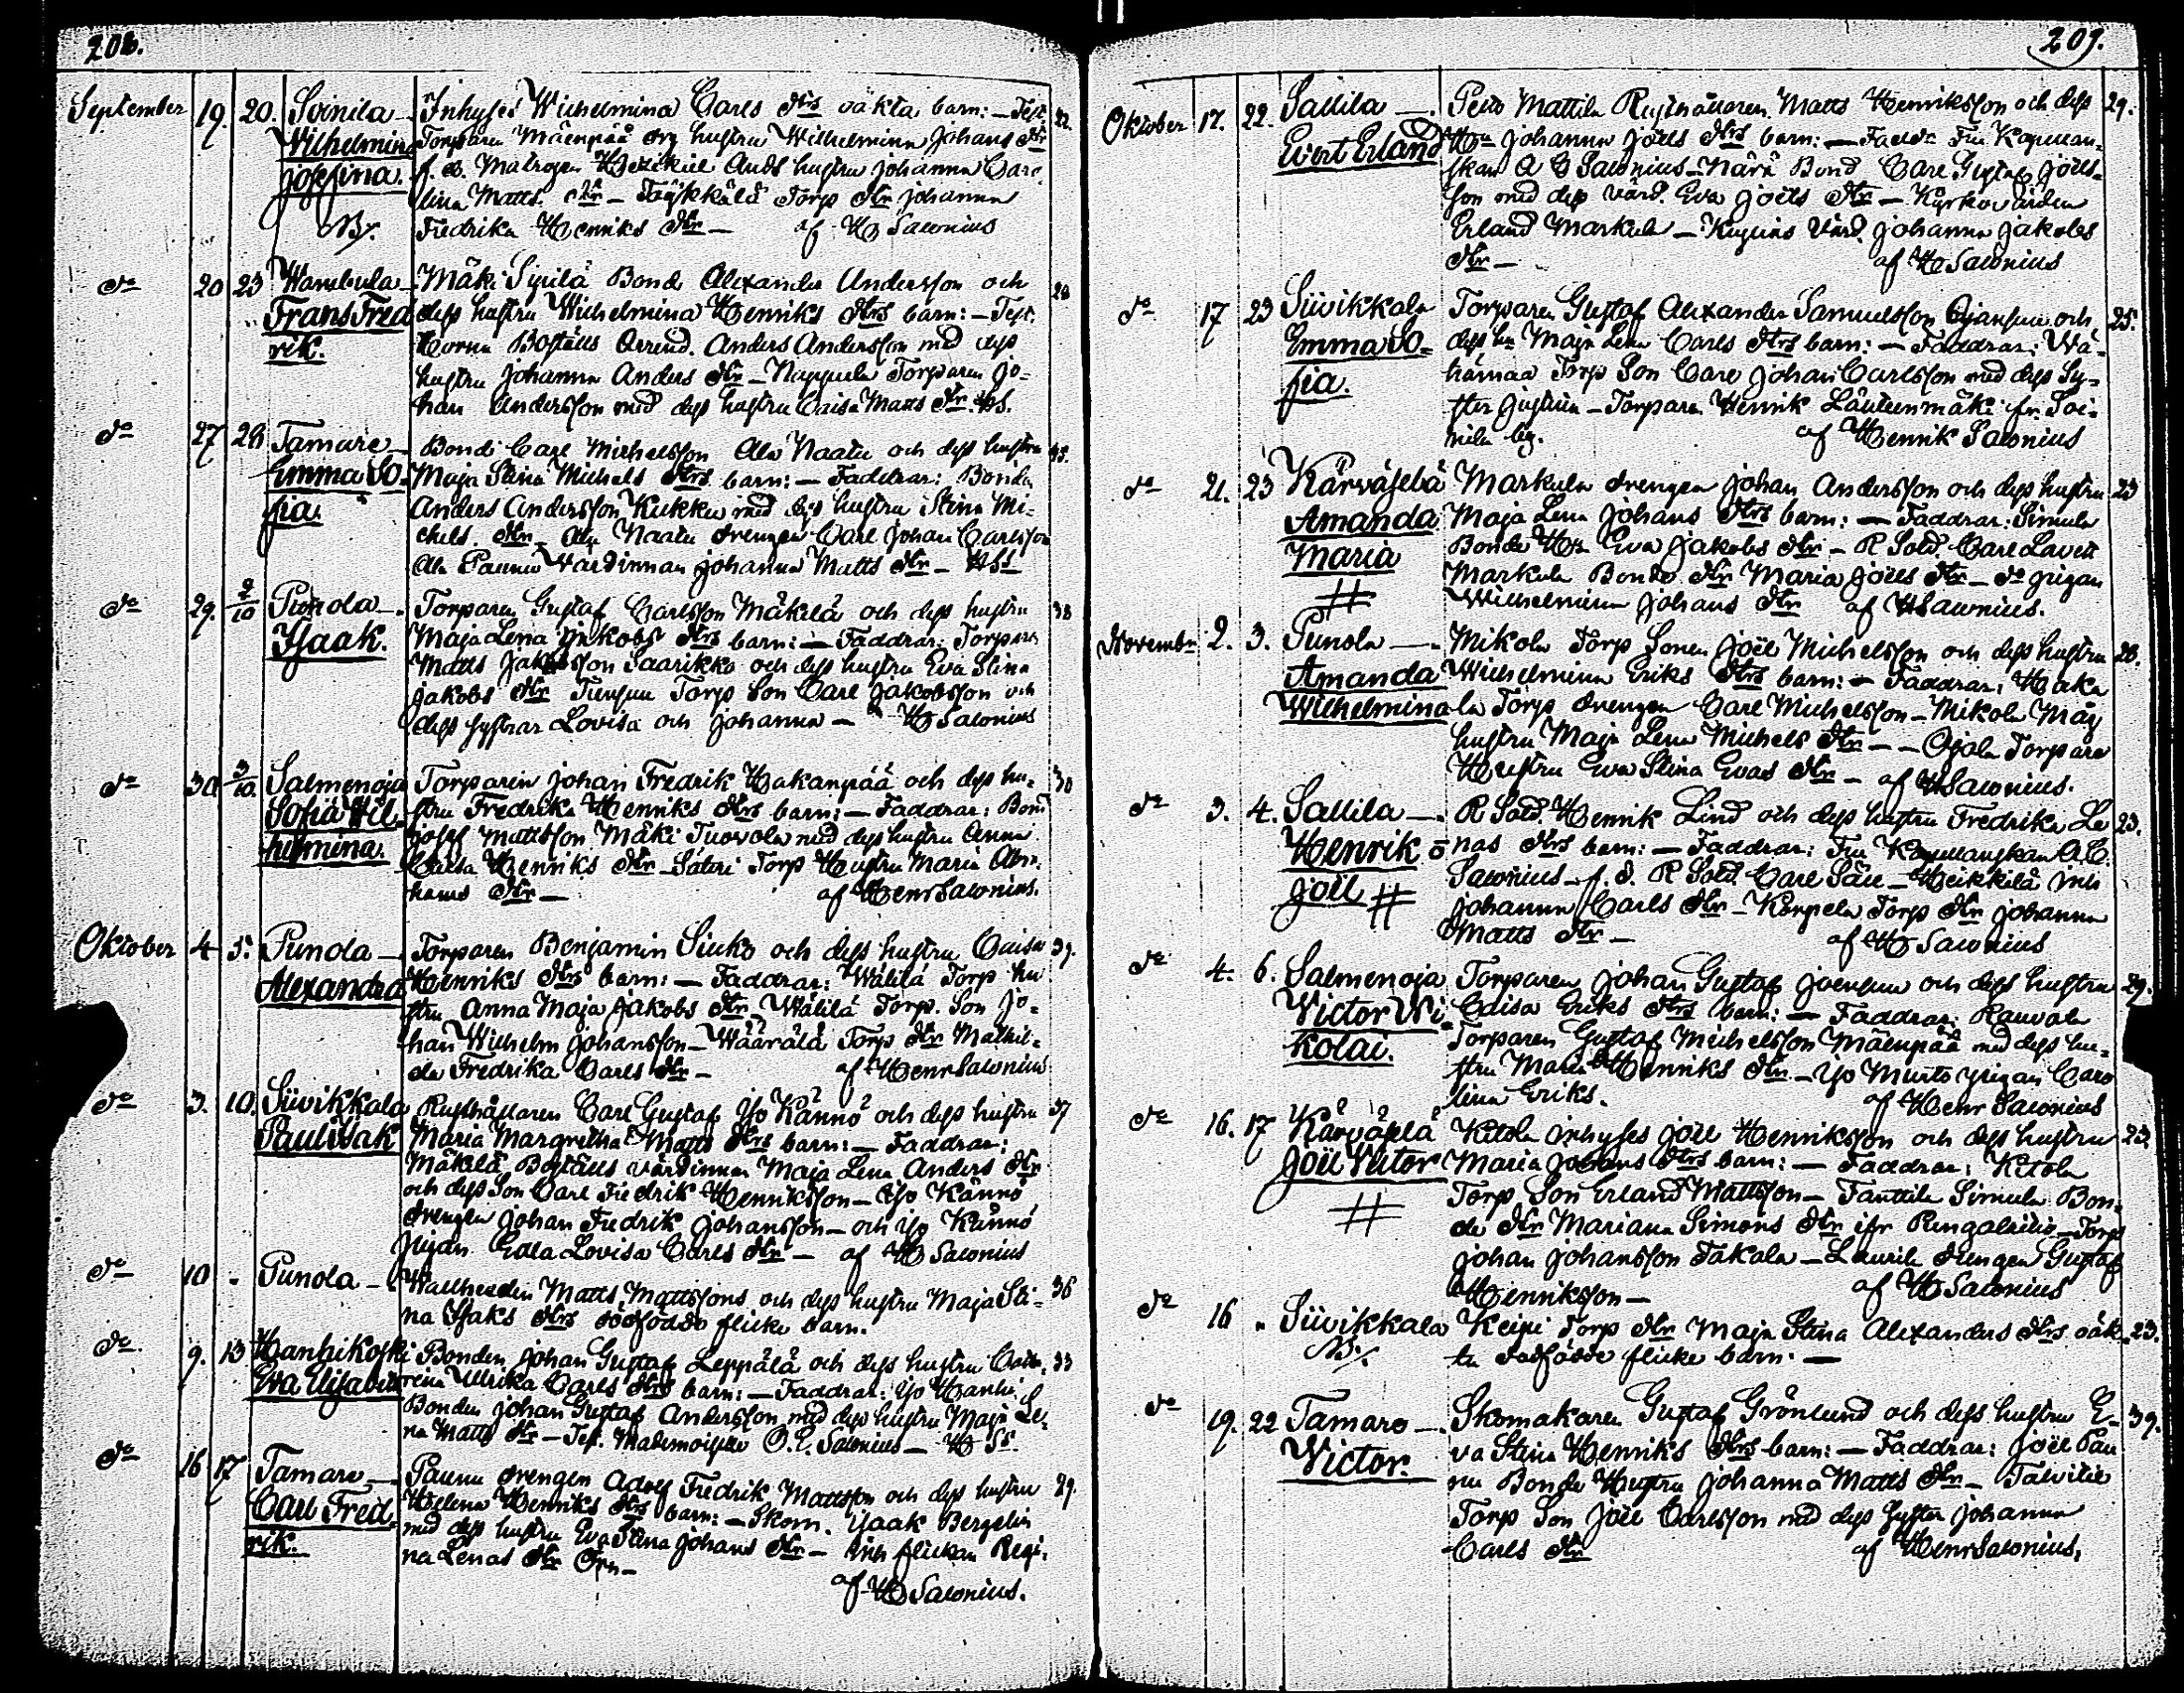 208.
September 19. 20. Soinila — Inhyses Wilhelmina Carls dtrs oäkta barn: — Test. 22.
Wilhelmina Torparen Mäenpää drg hustru Wilhelmina Johans dtr
Josefina. f. d. Matrosen Hezekiel Ands hustru Johanna Caro-
lina Matts dtr — Torp dtr Johanna
Fredrika Henriks dtr — af H Salonius
do 20 23 Wambula — Mäki Sipilä Bond Alexander Andersson och 28
Frans Fred dess hustru Wilhelmina Henriks dtrs barn: — Test.
rik. Boställs Arrend. Anders Andersson med dess
hustru Johanna Anders dtr — Torparen Jo-
han Andersson med dess hustru Caisa Matts dtr. HS.
do 27 28 Tamare — Bond Carl Michelsson Ala Naatu och dess hustru
Emma So- Maja Stina Michels dtrs barn: — Faddrar: Bonden
fia. Anders Andersson Kukku med dess hustru Stina Mi-
chels. dtr — Ala Naatu drengen Carl Johan Carlsson
Ala Paunu Värdinnan Johanna Matts dtr — HSs
do 29. 2/10 Punola —. Torparen Gustaf Carlsson Mäkilä och dess hustru 38
Isaak. Maja Lena Jakobs dtrs barn: — Faddrar: Torparen
Matts Jakobsson Saarikko och dess hustru Eva Stina
Jakobs dtr Torp Son Carl Jakobsson och
dess systrar Lovisa och Johanna — H Salonius
do 30 3/10. Salmenoja Torparen Johan Fredrik Hakanpää och dess hu- 30
Sofia Wil- stru Fredrika Henriks dtrs barn: — Faddrar: Bond
helmina. Josef Mattsson Mäki Tuovola med dess hustru Anna
Caisa Henriks dtr — Säteri Torp Hustru Maria Abra-
hams dtr — af Henr Salonius.
Oktober 4 5. Punola — Torparen Benjamin Siuko och dess hustru Caisa 39.
Alexandra Henriks dtrs barn: — Faddrar: Wälilä Torp hu
stru Anna Maja Jakobs dtr — Wälilä Torp. Son Jo-
han Wilhelm Johansson — Wäärälä Torp dtr Mathil-
da Fredrika Carls dtr — af Henr Salonius
do 3. 10. Siivikkala Rusthållaren Carl Gustaf Yo Kännö och dess hustru 37
Paul Isak Maria Margretha Matts dtrs barn: — Faddrar:
Mäkilä Boställs värdinnan Maja Lena Anders dtr
och dess Son Carl Fredrik Henriksson — Yo Kännö
drengen Johan Fredrik Johansson — och Yo Kännö
pigan Edla Lovisa Carls dtr — af H Salonius
do 10 " Punola — Matts Mattssons och dess hustru Maja Sti- 36
na Isaks dtrs dödfödde flicke barn.
do 9. 13 Hanhikoski Bonden Johan Gustaf Leppälä och dess hustru Cata- 33
Eva Elisabeth rina Ullrika Carls dtrs barn: — Faddrar: Yo Hanhi
Bonden Johan Gustaf Andersson med dess hustru Maja Le-
na Matts dtr — Test. Mademoiselle O. E. Salonius — H Ss.
do 16 17 Tamare —. Paunu drengen Adolf Fredrik Mattsson och dess hustru 29.
Carl Fred- Helena Henriks dtrs barn: — Skom. Isaak Bergelin
rik. med dess hustru Eva Stina Johans dtr — Inh flickan Regi-
na Lenas dtr —
af H Salonius.
209.
Oktober 17. 22. Sallila —. Mattila Rusthållaren Matts Henriksson och dess 29.
Evert Erland Hu Johanna Joëls dtrs barn: — Fru Kapellan-
skan A C Salonius — Närä Bond Carl Gustaf Joëls-
son med dess värd. Eva Joëls dtr — Kyrkovärden
Erland Markula — värd. Johanna Jakobs
dtr — af H Salonius
do 17 23 Siivikkala Torparen Gustaf Alexander Samuelsson Ojansuu och 25.
Emma So- dess hu Maja Lena Carls dtrs barn: — Faddrar: Wä-
fia. hämaa Torp Son Carl Johan Carlsson med dess Sy-
ster — Torparen Henrik Läuteenmäki fr. Soi-
nila by. af Henrik Salonius
do 21. 23 Kärväselä Markula drengen Johan Andersson och dess hustru 23
Amanda Maja Lena Johans dtrs barn: — Faddrar: Simula
Maria Bonde Hu Eva Jakobs dtr — R Sold. Carl
Markula Bonde dtr Maria Joëls dtr — do pigan
Wilhelmina Johans dtr af H Salonius.
November 2. 3. Punola —. Mikola Torp Sonen Joël Michelsson och dess hustru 28.
Amanda Wilhelmina Eriks dtrs barn: — Faddrar: Haka
Wilhelmina la Torp drengen Carl Michelsson — Mikola Måg
hustru Maja Lena Michels dtr — Ojala Torpare
Hustru Eva Stina Evas dtr — af H Salonius.
do 3. 4. Sallila —. R Sold. Henrik Lind och dess hustru Fredrika Le 23.
Henrik nas dtrs barn: — Faddrar: Fru Kapellanskan A. C.
Joël Salonius — f. d. R Sold. Carl — Heikkilä Inh
Johanna Carls dtr — Korpela Torp dtr Johanna
Matts dtr — af H Salonius
do 4. 6. Salmenoja Torparen Johan Gustaf och dess hustru 29.
Victor Ni- Caisa Eriks dtrs barn: — Faddrar: Rauvola
kolai. Torparen Gustaf Michelsson Mäenpää med dess hu-
stru Maria Henriks dtr — Yo Murto pigan Caro
lina Eriks. af Henr Salonius
do 16. 17 Kärväselä Kitola inhyses Joël Henriksson och dess hustru 23.
Joël Victor Maria Johans dtrs barn: — Faddrar: Kitola
Torp Son Erland Mattsson — Tanttila Simula Bon-
de dtr Mariana Simons dtr ifr — Torp
Johan Johansson Takala — Laurila drengen Gustaf
Henriksson — af H Salonius
do 16 " Siivikkala Keipi Torp dtr Maja Stina Alexanders dtrs oäk- 23.
ta dödfödde flicke barn. —
do 19. 22 Tamare —. Skomakaren Gustaf Grönlund och dess hustru E- 39.
Victor. va Stina Henriks dtrs barn: — Faddrar: Joël Pau
nu Bonde Hustru Johanna Matts dtr — Talvitie
Torp Son Joël Carlsson med dess Syster Johanna
Carls dtr af Henr Salonius.